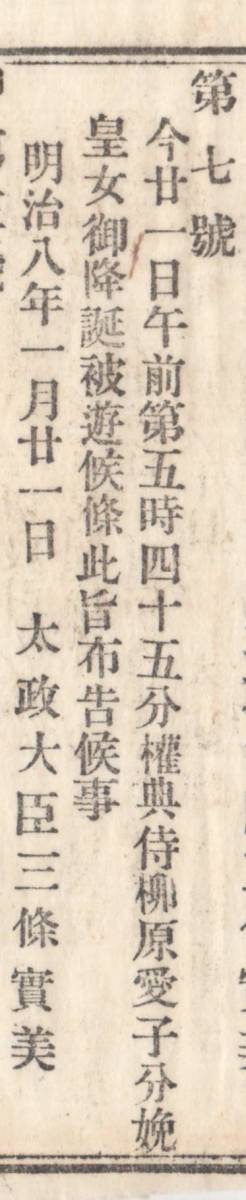 第七號
今廿一日午前第五時四十五分權典侍柳原愛子分娩
皇女御降誕被遊候條此旨布告候事
明治八年一月廿一日　太政大臣三條實美